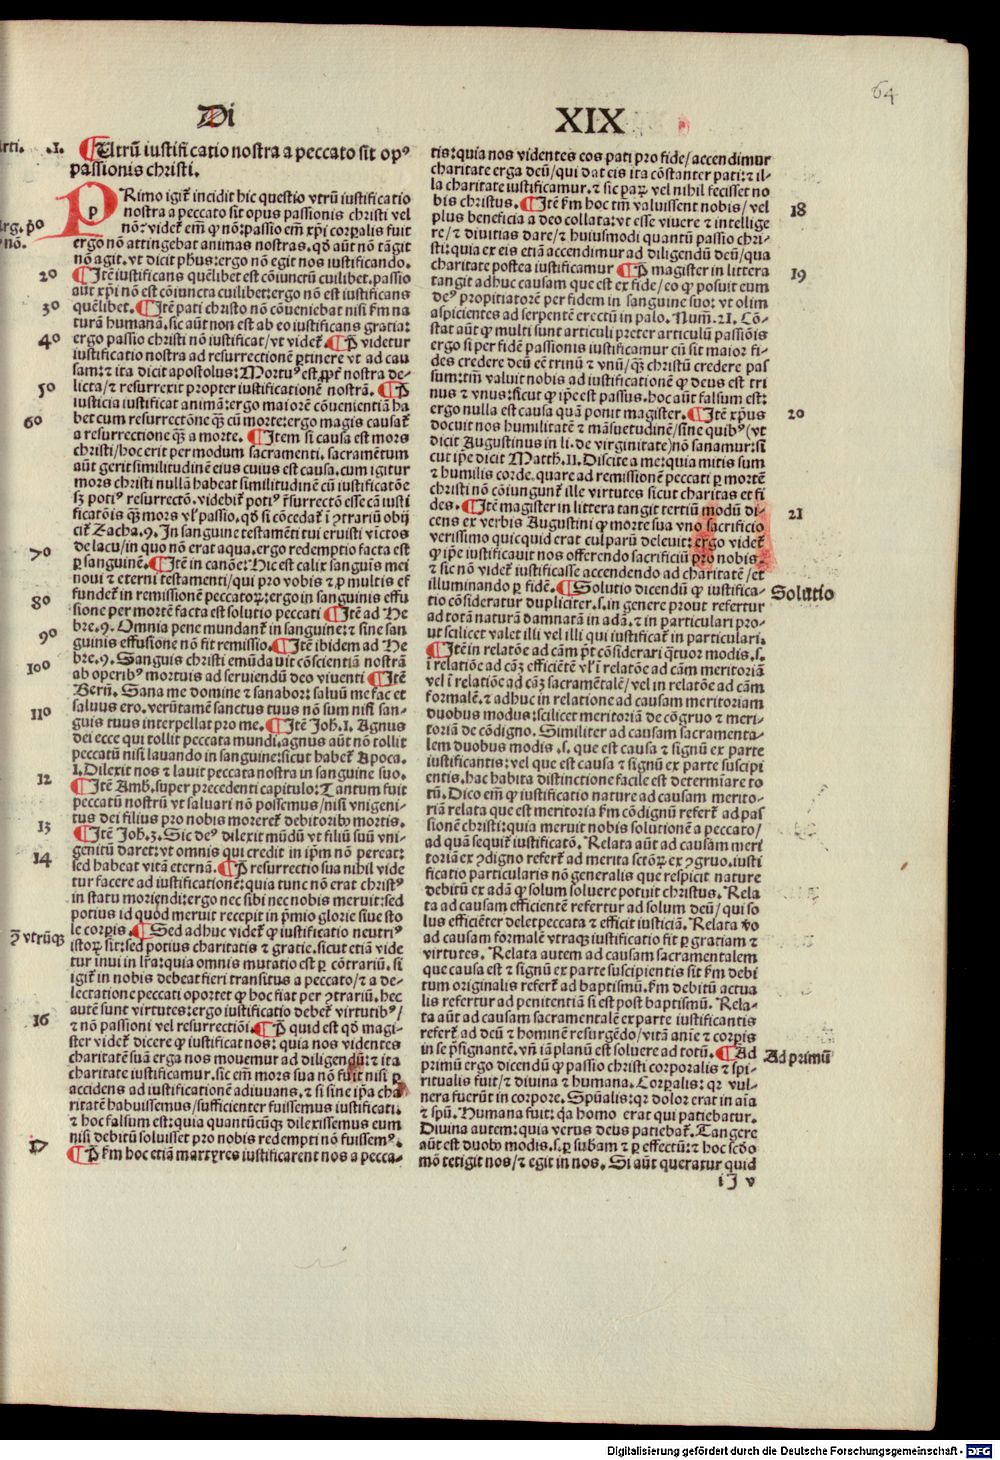 64
Di XIX
Arti. .1. ¶Utrū iustificatio nostra a peccato sit opꝰ
passionis christi.
PRimo igit᷑ incidit hic questio vtrū iustificatio
nostra a peccato sit opus passionis christi vel
nō: videt᷑ em̄ ꝙ nō: passio em̄ xp̄i corꝑalis fuit
ergo nō attingebat animas nostras. qd̄ aūt nō tāgit
nō agit. vt dicit ph̄us: ergo nō egit nos iustificando.
20 ¶Itē iustificans quēlibet est cōiunctū cuilibet. passio
aūt xp̄i nō est cōiuncta cuilibet: ergo nō est iustificans
30 quēlibet. ¶Itē pati christo nō cōueniebat nisi ẜm na
turā humanā. sic aūt non est ab eo iustificans gratia:
40 ergo passio christi nō iustificat/ vt videt᷑. ¶P̄ videtur
iustificatio nostra ad resurrectionē ꝑtinere vt ad cau
sam: ⁊ ita dicit apostolus: Mortuꝰ est ꝓpt̄ nostra de-
50 licta/ ⁊ resurrexit propter iustificationē nostrā. ¶P̄
iusticia iustificat animā: ergo maiorē cōuenientiā ha
60 bet cum resurrectōne qȝ cū morte: ergo magis causat᷑
a resurrectione qȝ a morte. ¶Item si causa est mors
christi/ hoc erit per modum sacramenti. sacramētum
aūt gerit similitudinē eius cuius est causa. cum igitur
mors christi nullā habeat similitudinē cū iustificatōe
sȝ potiꝰ resurrectō. videbit᷑ potiꝰ r̄surrectō esse cā iusti
ficatōis qȝ mors vl̓ passio. qd̄ si cōcedat᷑ ī ꝯtrariū obij
cit᷑ Zacha. 9. In sanguine testamēti tui eruisti vīctos
70 de lacu/ in quo nō erat aqua. ergo redemptio facta est
ꝑ sanguinē. ¶Itē in canōe: Hic est calix sanguis mei
noui ⁊ eterni testamenti/ qui pro vobis ⁊ ꝓ multis ef
80 fundet᷑ in remissionē peccatoꝝ: ergo in sanguinis effu
sione per mortē facta est solutio peccati ¶Itē ad He
90 bre. 9. Omnia pene mundant᷑ in sanguine: ⁊ sine san
guinis effusione nō fit remissio. ¶Itē ibidem ad He
100 bre. 9. Sanguis christi emūdauit cōscientiā nostrā
ab operibꝰ mortuis ad seruiendū deo viuenti ¶Itē
Berñ. Sana me domine ⁊ sanabor: saluū me fac et
110 saluus ero. verūtamē sanctus tuus nō sum nisi san-
guis tuus interpellat pro me. ¶Itē Joh. 1. Agnus
dei ecce qui tollit peccata mundi. agnus aūt nō tollit
peccatū nisi lauando in sanguine: sicut habet᷑ Apoca.
12 1. Dilexit nos ⁊ lauit peccata nostra in sanguine suo.
¶Itē Amb. super precedenti capitulo: Tantum fuit
peccatū nostrū vt saluari nō possemus/ nisi vnigeni-
13 tus dei filius pro nobis moreret᷑ debitoribꝰ mortis.
¶Itē Joh. 3. Sic deꝰ dilexit mūdū vt filiū suū vni-
14 genitū daret: vt omnis qui credit in ip̄m nō pereat:
sed habeat vitā eternā. ¶P̄ resurrectio sua nihil vide
tur facere ad iustificationē: quia tunc nō erat christꝰ
in statu moriendi: ergo nec sibi nec nobis meruit: sed
potius id quod meruit recepit in p̄mio glorie siue sto
ꝯ̄ vtrūqȝ le corꝑis. ¶Sed adhuc videt᷑ ꝙ iustificatio neutriꝰ
istoꝝ sit: sed potius charitatis ⁊ gratie. sicut etiā vide
tur inui in lr̄a: quia omnis mutatio est ꝑ cōtrariū. si
igit᷑ in nobis debeat fieri transitus a peccato/ ⁊ a de-
lectatione peccati oportet ꝙ hoc fiat per ꝯtrariū. hec
autē sunt virtutes: ergo iustificatio debet᷑ virtutibꝰ/
16 ⁊ nō passioni vel resurrectiōi. ¶P̄ quid est qd̄ magi-
ster videt᷑ dicere ꝙ iustificat nos: quia nos videntes
charitatē suā erga nos mouemur ad diligendū: ⁊ ita
charitate iustificamur. sic em̄ mors sua nō fuit nisi ꝑ
accidens ad iustificationē adiuuans. ⁊ si sine ip̄a cha
ritatē habuissemus/ sufficienter fuissemus iustificati.
⁊ hoc falsum est: quia quantūcūqȝ dilexissemus eum
nisi debitū soluisset pro nobis redempti nō fuissemꝰ.
17 ¶P̄ ẜm hoc etiā martyres iustificarent nos a pecca-
tis: quia nos videntes eos pati pro fide/ accendimur
charitate erga deū/ qui dat eis ita cōstanter pati: ⁊ il-
la charitate iustificamur. ⁊ sic paꝝ vel nihil fecisset no
18 bis christus. ¶Itē ẜm hoc tm̄ valuissent nobis/ vel
plus beneficia a deo collata: vt esse viuere ⁊ intellige
re/ ⁊ diuitias dare/ ⁊ huiusmodi quantū passio chri-
sti: quia ex eis etiā accendimur ad diligendū deū/ qua
19 charitate postea iustificamur ¶P̄ magister in littera
tangit adhuc causam que est ex fide/ eo ꝙ posuit eum
deꝰ propitiatorē per fidem in sanguine suo: vt olim
aspicientes ad serpentē erectū in palo. Num̄. 21. Cō-
stat aūt ꝙ multi sunt articuli preter articulū passiōis
ergo si per fidē passionis iustificamur cū sit maior fi-
des credere deū eē trinū ⁊ vnū/ qȝ christū credere pas
sum: tm̄ valuit nobis ad iustificationē ꝙ deus est tri
nus ⁊ vnus: sicut ꝙ ip̄e est passus. hoc aūt falsum est:
20 ergo nulla est causa quā ponit magister. ¶Itē xp̄us
docuit nos humilitatē ⁊ māsuetudinē/ sine quibꝰ (vt
dicit Augustinus in li. de virginitate) nō sanamur: si
cut ip̄e dicit Matth. 11. Discite a me: quia mitis sum
⁊ humilis corde. quare ad remissionē peccati ꝑ mortē
christi nō cōiungunt᷑ ille virtutes sicut charitas et fi
21 des. ¶Itē magister in littera tangit tertiū modū di-
cens ex verbis Augustini ꝙ morte sua vno sacrificio
verissimo quicquid erat culparū deleuit: ergo videt᷑
ꝙ ip̄e iustificauit nos offerendo sacrificiū pro nobis.
⁊ sic nō videt᷑ iustificasse accendendo ad charitatē/ et
Solutio illuminando ꝑ fidē. ¶Solutio dicendū ꝙ iustifica-
tio cōsideratur dupliciter. s. in genere prout refertur
ad totā naturā damnatā in adā. ⁊ in particulari pro-
ut scilicet valet illi vel illi qui iustificat᷑ in particulari.
¶Itē in relatōe ad cām p̄t cōsiderari q̄tuor modis. s.
ī relatiōe ad cāȝ efficiētē vl̓ ī relatōe ad cām meritoriā
vel ī relatiōe ad cāȝ sacramētalē/ vel in relatōe ad cām
formalē. ⁊ adhuc in relatione ad causam meritoriam
duobus modus: scilicet meritoriā de cōgruo ⁊ meri-
toriā de cōdigno. Similiter ad causam sacramenta-
lem duobus modis .s. que est causa ⁊ signū ex parte
iustificantis: vel que est causa ⁊ signū ex parte suscipi
entis. hac habita distinctione facile est determīare to
tū. Dico em̄ ꝙ iustificatio nature ad causam merito-
riā relata que est meritoria ẜm cōdignū refert᷑ ad pas
sionē christi: quia meruit nobis solutionē a peccato/
ad quā sequit᷑ iustificatō. Relata aūt ad causam meri
toriā ex ꝯdigno refert᷑ ad merita sctōꝝ ex ꝯgruo. iusti
ficatio particularis nō generalis que respicit nature
debitū ex adā ꝙ solum soluere potuit christus. Rela
ta ad causam efficientē refertur ad solum deū/ qui so
lus efficiēter delet peccata ⁊ efficit iusticiā. Relata v̄o
ad causam formalē vtraqȝ iustificatio fit ꝑ gratiam ⁊
virtutes. Relata autem ad causam sacramentalem
que causa est ⁊ signū ex parte suscipientis sit ẜm debi
tum originalis refert᷑ ad baptismū. ẜm debitū actua
lis refertur ad penitentiā si est post baptismū. Rela-
ta aūt ad causam sacramentalē ex parte iustificantis
refert᷑ ad deū ⁊ hominē resurgēdo/ vitā anīe ⁊ corꝑis
in se p̄signantē. vn̄ iā planū est soluere ad totū. ¶Ad
Ad primū primū ergo dicendū ꝙ passio christi corporalis ⁊ spi-
ritualis fuit/ ⁊ diuina ⁊ humana. Corꝑalis: qꝛ vul-
nera fuerūt in corpore. Spūalis: qꝛ dolor erat in aīa
⁊ spū. Humana fuit: q̄a homo erat qui patiebatur.
Diuina autem: quia verus deus patiebat᷑. Tangere
aūt est duobꝰ modis. s. ꝑ subam ⁊ ꝑ effectū: ⁊ hoc scd̄o
mō tetigit nos/ ⁊ egit in nos. Si aūt queratur quid
iJ v
Digitalisierung gefördert durch die Deutsche Forschungsgemeinschaft - DFG